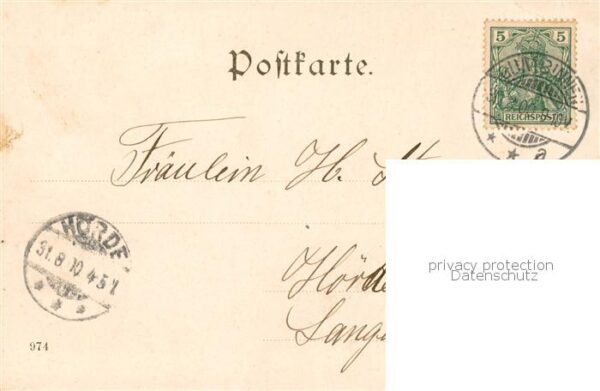 5 5
REICHSPOST
Postkarte.
Fräulein H.
HÖRDE
31.8.10 4-5 N.
Hörde
Lang
privacy protection
Datenschutz
974